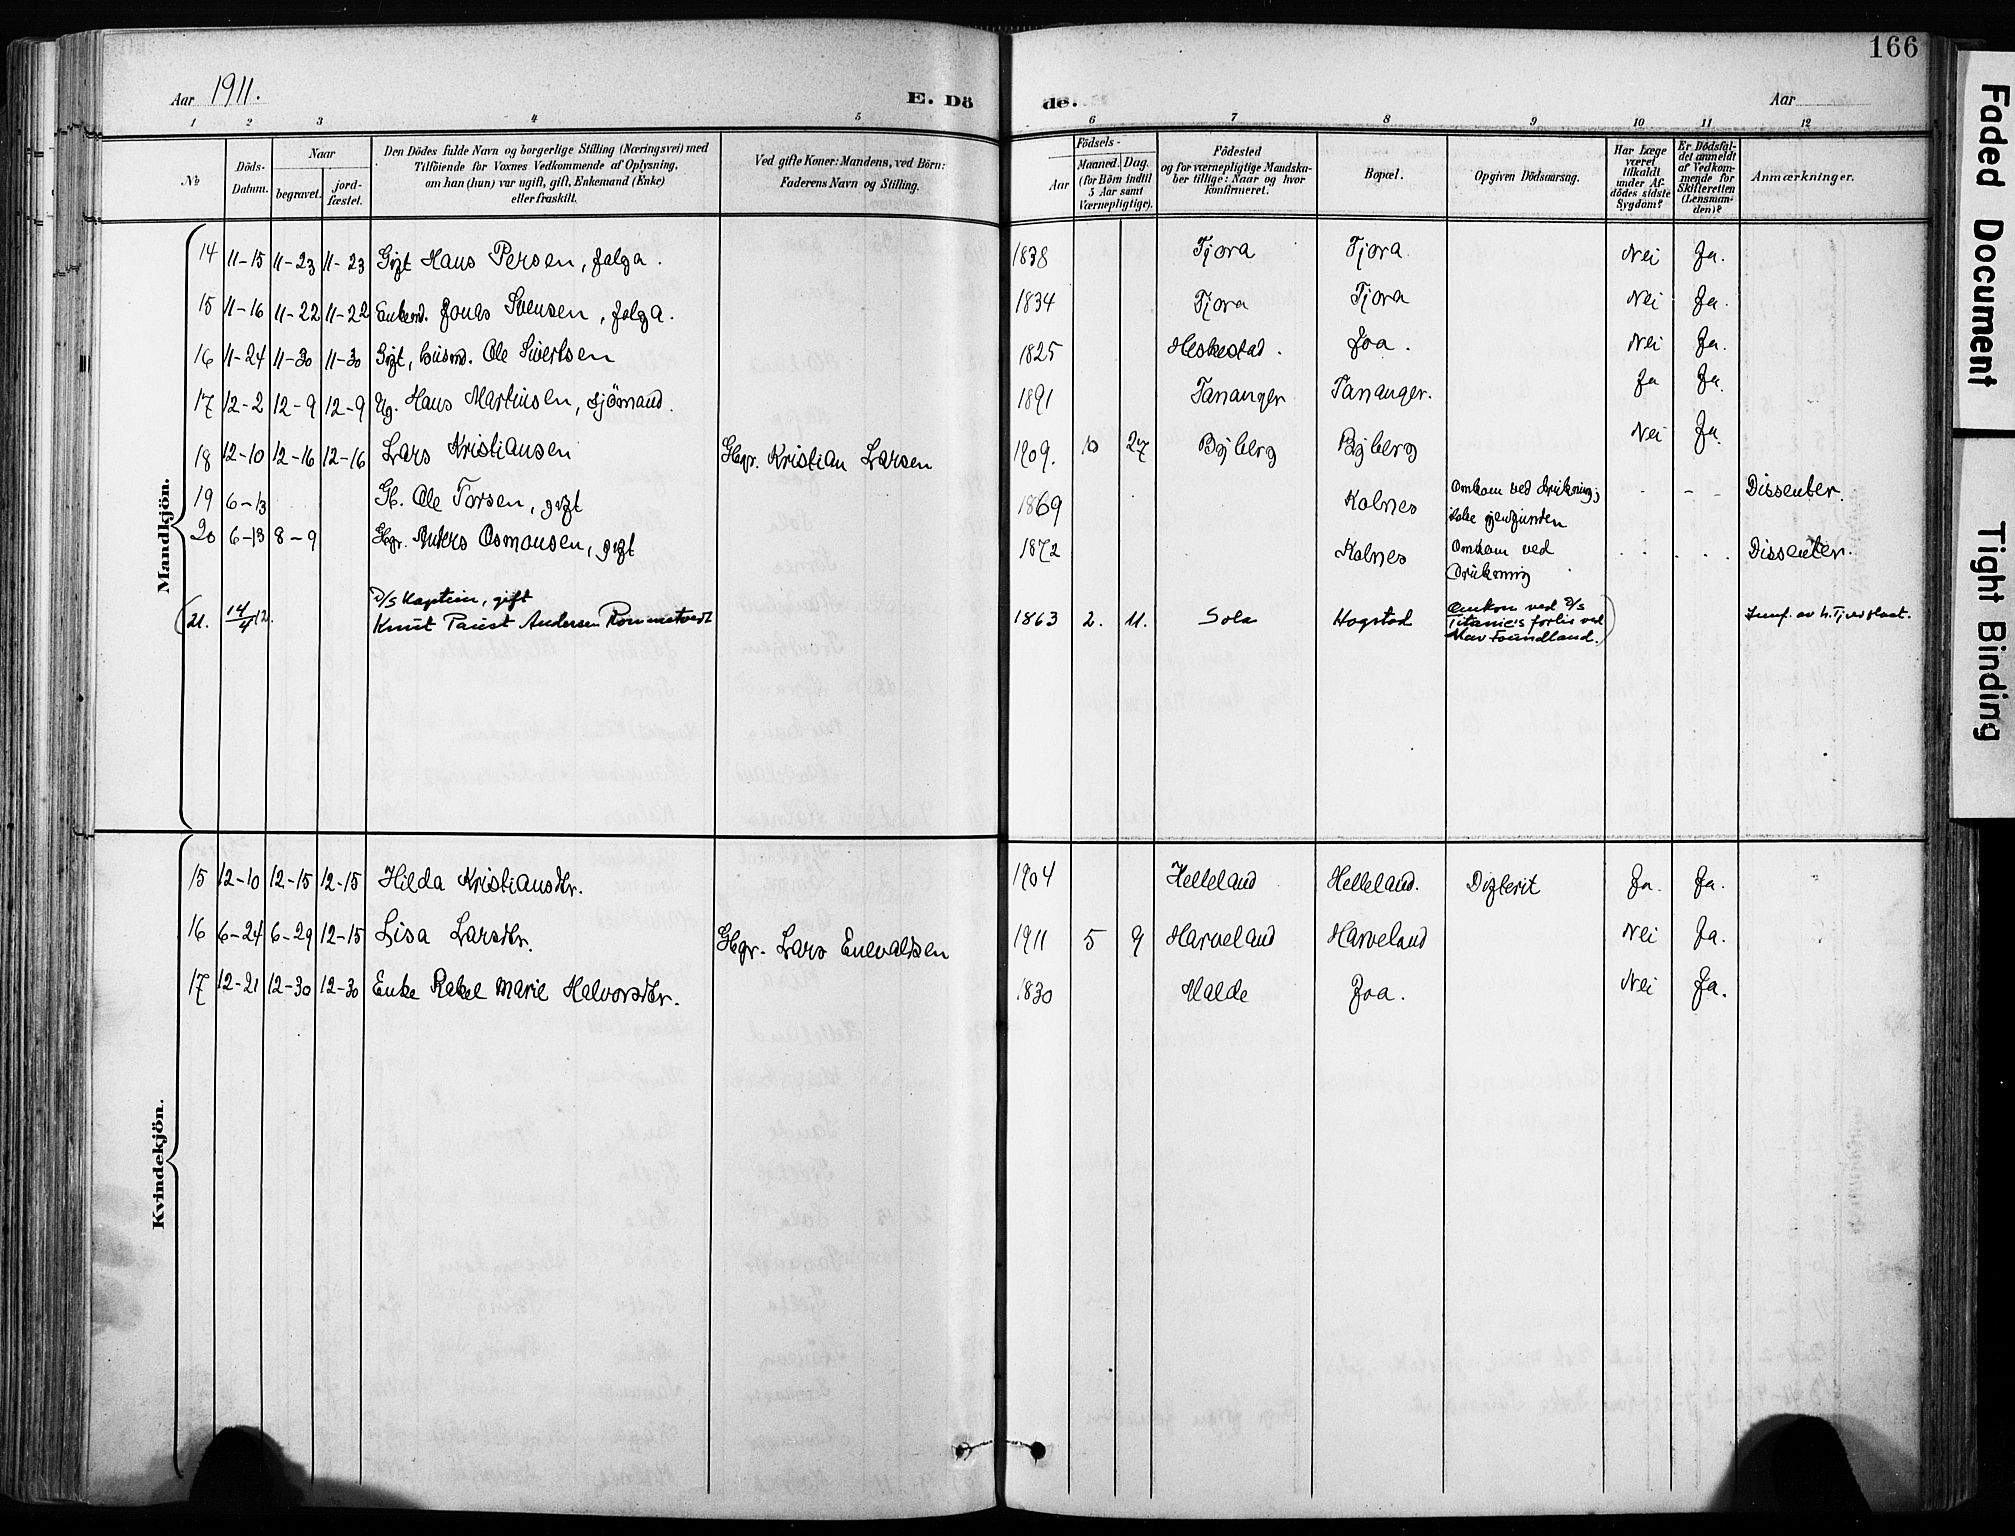 166
Aar 1911.
E. Dö
de.
Aar
1 2 3 4 5 6 7 8 9 10 11 12
No
Döds-
Datum.
Naar
begravet.
jord-
fæstet.
Den Dödes fulde Navn og borgerlige Stilling (Næringsvei) med
Tilföiende for Voxnes Vedkommende af Oplysning,
om han (hun) var ugift, gift, Enkemand (Enke)
eller fraskilt.
Ved gifte Koner: Mandens, ved Börn:
Faderens Navn og Stilling.
Födsels-
Aar
Maaned. Dag.
(for Börn indtil
5 Aar samt
Værnepligtige).
Födested
og for værnepligtige Mandska-
ber tillige: Naar og hvor
konfirmeret.
Bopæl.
Opgiven Dödsaarsag.
Har Læge
været
tilkaldt
under Af-
dödes sidste
Sygdom?
Er Dödsfal-
det anmeldt
af Vedkom-
mende for
Skifteretten
(Lensman-
den)?
Anmærkninger.
Mandkjön.
14 11-15 11-23 11-23 Gift Hans Persen, folga. 1838 Tjora Tjora. Nei Ja.
15 11-16 11-22 11-22 Enkemd. Jonas Svensen, folga. 1834 Tjora Tjora Nei Ja.
16 11-24 11-30 11-30 Gift, husmd. Ole Sivertsen 1825 Heskestad. Joa. Nei Ja.
17 12-2 12-9 12-9 Ug. Hans Martinsen, sjömand. 1891 Tananger Tananger. Ja Ja.
18 12-10 12-16 12-16 Lars Kristiansen Gbgr. Kristian Larsen 1909. 10 27 Byberg Byberg Nei Ja.
19 6-13 G. Ole Torsen, gift 1869 Kolnes Omkom ved drukning; Dissenter.
ikke gjenfunden
20 6-13 8-9 Gbgr. Anders Osmonsen, gift 1872 Kolnes Omkom ved Dissenter.
Drukning
D/S Kaptein, gift
(21. 14/4 12. Knut Paust Andersen Rommetvedt 1863 2. 11. Sola Hogstad Omkom ved D/S
Titanic's forlis ved
New Foundland.)
Kvindekjön.
15 12-10 12-15 12-15 Hilda Kristiansdtr. 1904 Helleland Helleland. Difterit Ja. Ja.
16 6-24 6-29 12-15 Lisa Larsdtr. Gbgr. Lars Enevaldsen 1911 5 9 Harveland Harveland Nei Ja.
17 12-21 12-30 12-30 Enke Rakel Marie Halvorsdtr. 1830 Malde Joa. Nei Ja.
Faded Document
Tight Binding